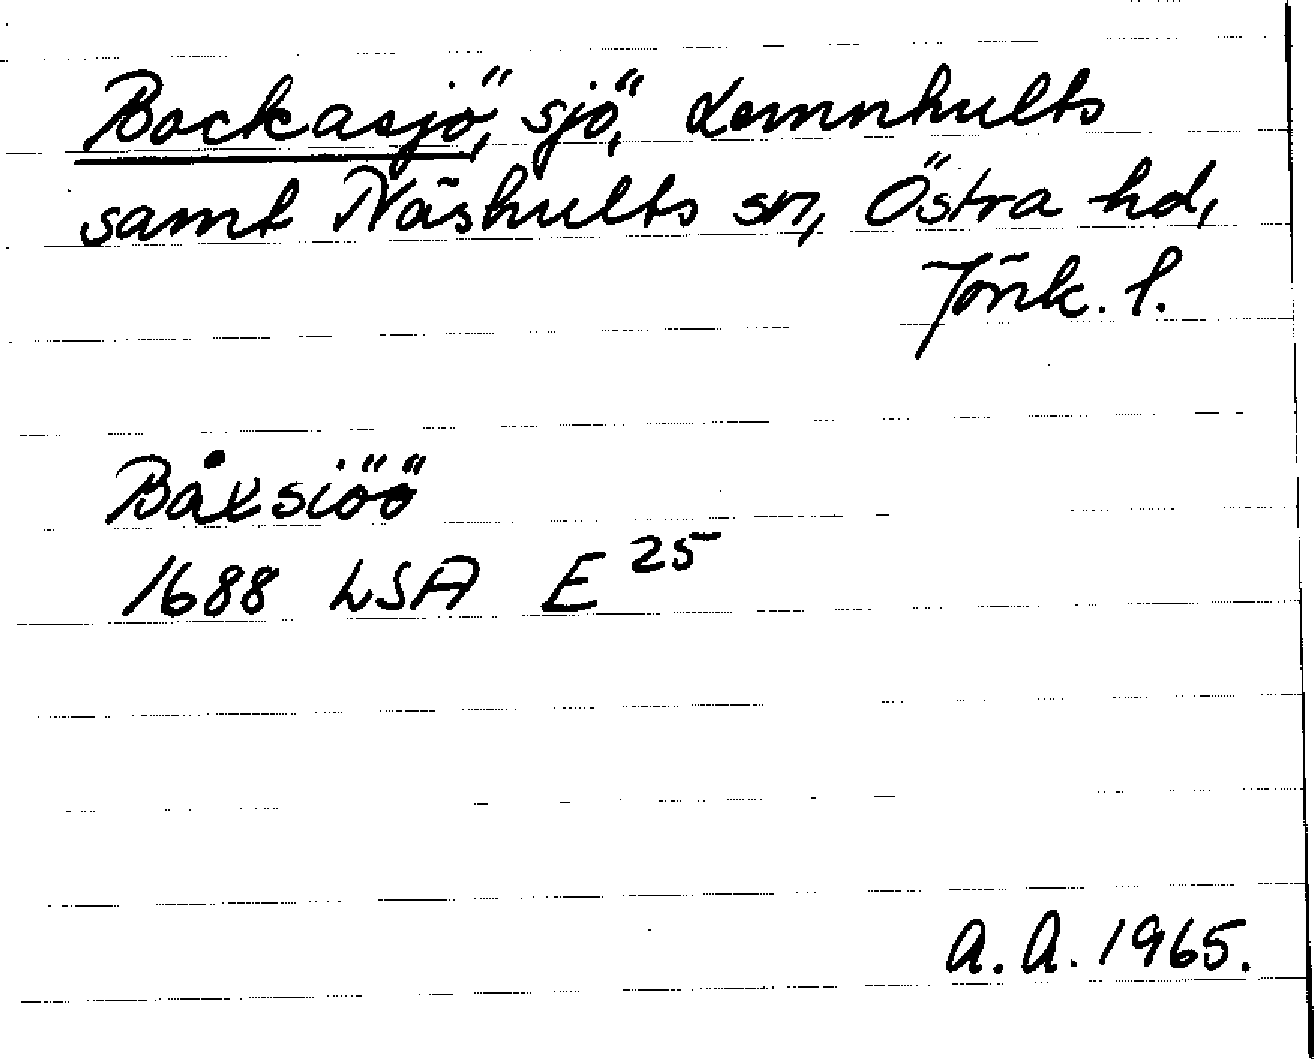 Bockasjö, sjö, Lemnhults
samt Näshults sn, Östra hd,
Jönk. l.
Båxsiöö
1688 LSA E 25
A. A. 1965.